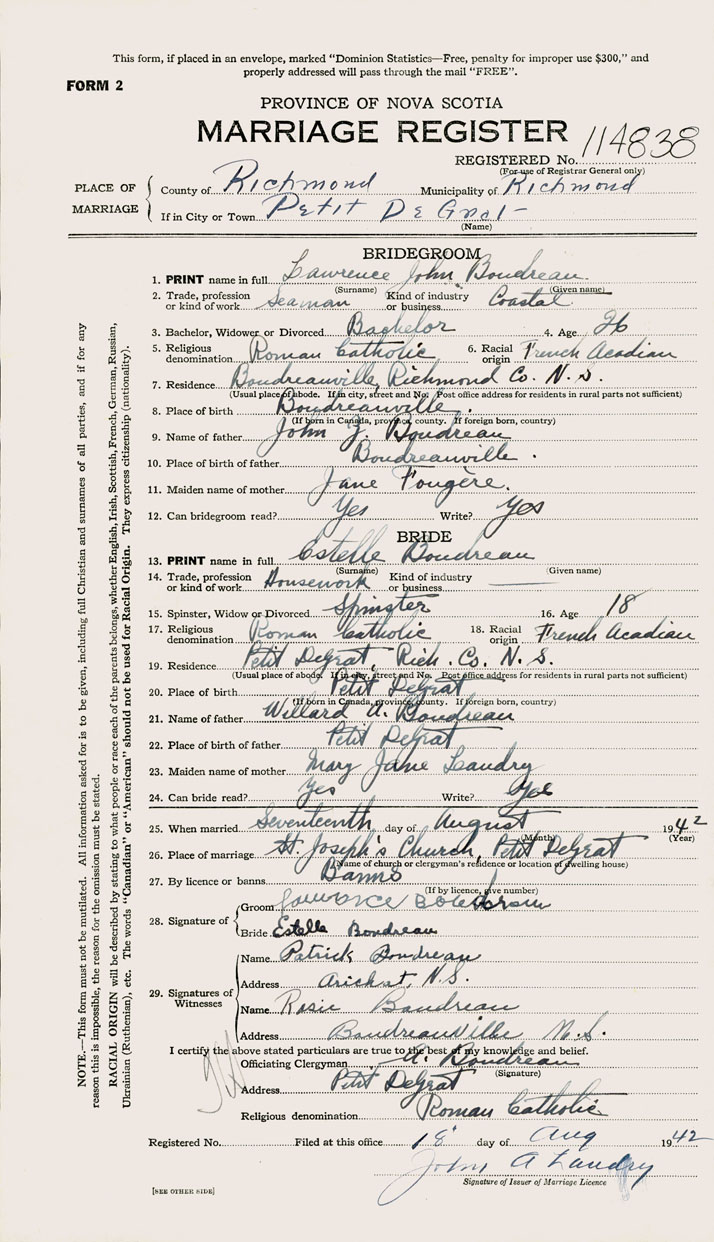 This form, if placed in an envelope, marked "Dominion Statistics—Free, penalty for improper use $300," and
properly addressed will pass through the mail "FREE".
FORM 2
PROVINCE OF NOVA SCOTIA
MARRIAGE REGISTER
REGISTERED No. 114838
(For use of Registrar General only)
PLACE OF MARRIAGE
County of Richmond Municipality of Richmond
If in City or Town Petit De Grat
(Name)
BRIDEGROOM
1. PRINT name in full Lawrence John Boudreau
(Surname) (Given name)
2. Trade, profession or kind of work Seaman Kind of industry or business Coastal
3. Bachelor, Widower or Divorced Bachelor 4. Age 26
5. Religious denomination Roman Catholic 6. Racial origin French Acadian
7. Residence Boudreauville, Richmond Co. N. S.
(Usual place of abode. If in city, street and No. Post office address for residents in rural parts not sufficient)
8. Place of birth Boudreauville.
(If born in Canada, province, county. If foreign born, country)
9. Name of father John J. Boudreau
10. Place of birth of father Boudreauville.
11. Maiden name of mother Jane Fougère.
12. Can bridegroom read? Yes Write? Yes
BRIDE
13. PRINT name in full Estelle Boudreau
(Surname) (Given name)
14. Trade, profession or kind of work Housework Kind of industry or business
15. Spinster, Widow or Divorced Spinster 16. Age 18
17. Religious denomination Roman Catholic 18. Racial origin French Acadian
19. Residence Petit Degrat, Rich. Co. N. S.
(Usual place of abode. If in city, street and No. Post office address for residents in rural parts not sufficient)
20. Place of birth Petit Degrat
(If born in Canada, province, county. If foreign born, country)
21. Name of father Willard A. Boudreau
22. Place of birth of father Petit Degrat
23. Maiden name of mother Mary Jane Landry
24. Can bride read? Yes Write? Yes
25. When married Seventeenth day of August 1942
(Month) (Year)
26. Place of marriage St. Joseph's Church, Petit Degrat
(Name of church or clergyman's residence or location of dwelling house)
27. By licence or banns Banns
(If by licence, give number)
28. Signature of
Groom
Bride Estelle Boudreau
29. Signatures of Witnesses
Name Patrick Boudreau
Address Arichat, N.S.
Name Rosie Boudreau
Address Boudreauville N.S.
I certify the above stated particulars are true to the best of my knowledge and belief.
Officiating Clergyman A. Boudreau
(Signature)
Address Petit Degrat
Religious denomination Roman Catholic
Registered No. Filed at this office 18 day of Aug 1942
John A Landry
Signature of Issuer of Marriage Licence
[SEE OTHER SIDE]
NOTE.—This form must not be mutilated. All information asked for is to be given, including full Christian and surnames of all parties, and if for any
reason this is impossible, the reason for the omission must be stated.
RACIAL ORIGIN will be described by stating to what people or race each of the parents belongs, whether English, Irish, Scottish, French, German, Russian,
Ukrainian (Ruthenian), etc. The words "Canadian" or "American" should not be used for Racial Origin. They express citizenship (nationality).